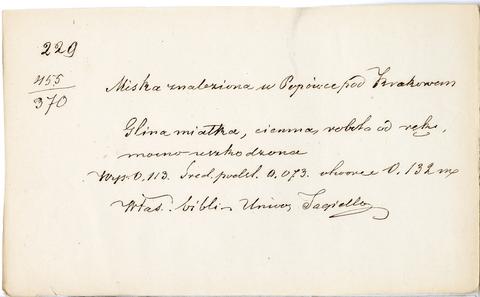 229
455
370
Miska znaleziona w Popówce pod Krakowem
Glina miałka, ciemna, robota od ręki,
mocno uszkodzona
Wys. 0.113. Śred. podst. 0.073. otworu 0.132 m
Włas. bibli. Uniw. Jagiello